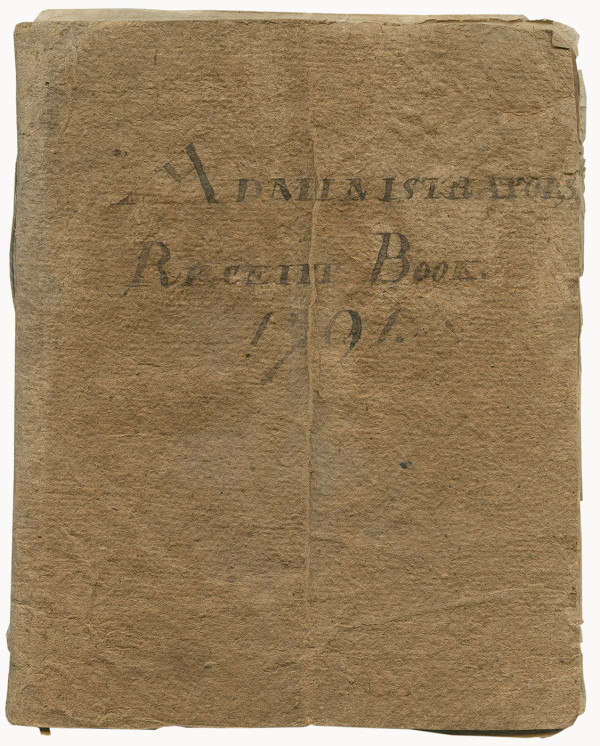 ADMINISTRATORS
RECEIPT BOOK.
1791.